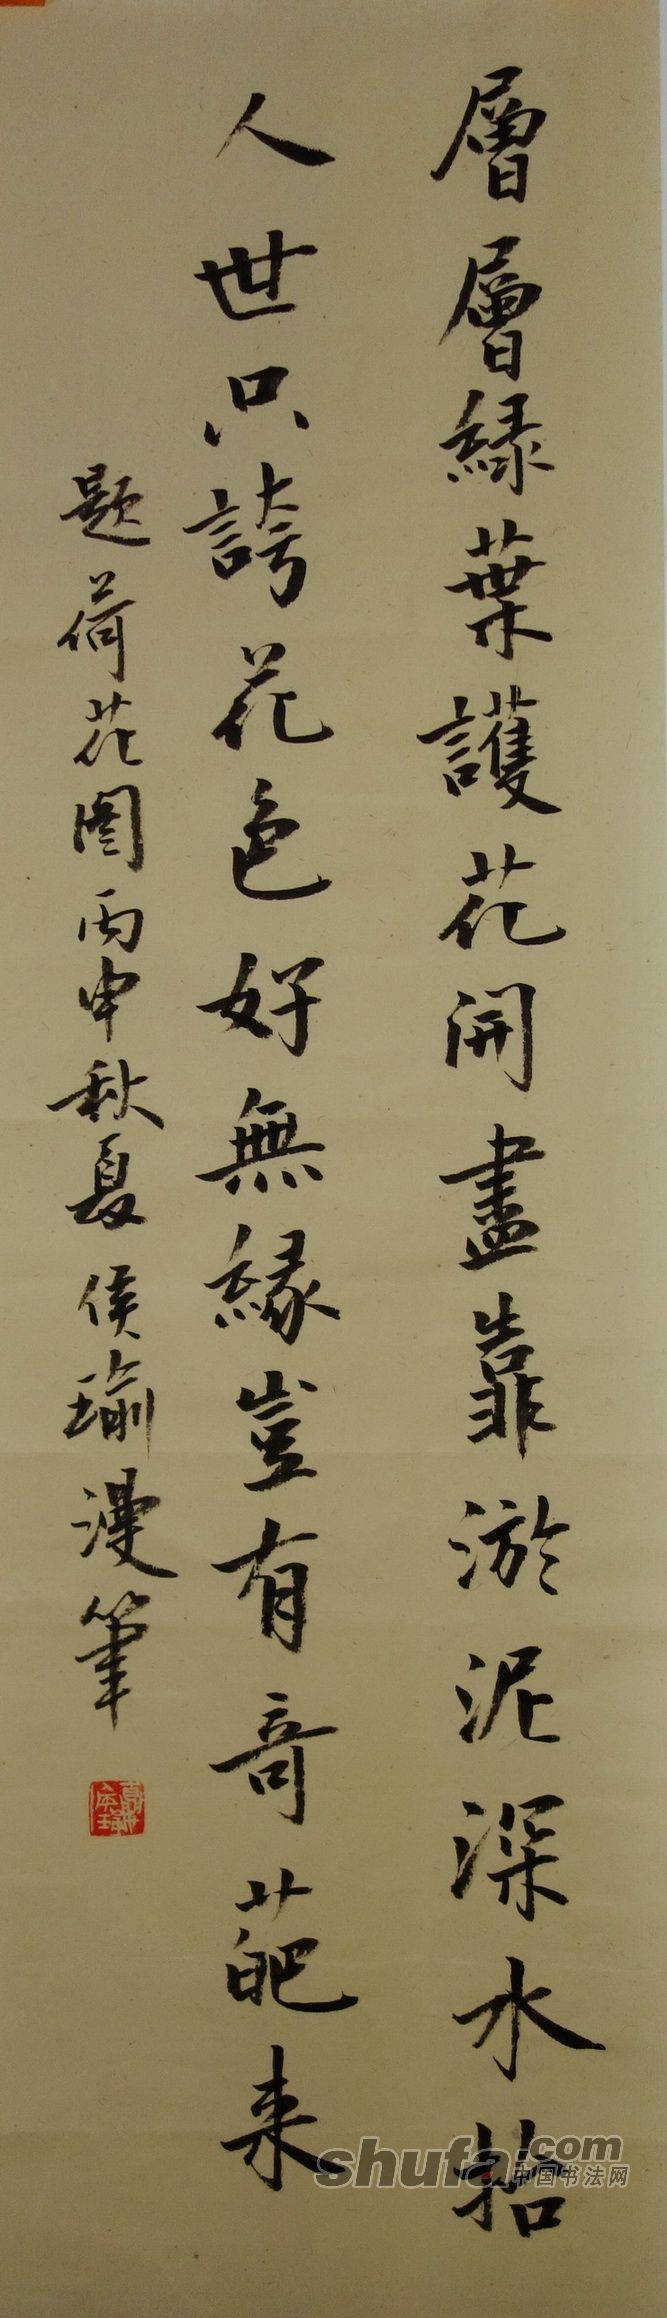 層層緑葉護花開盡靠淤泥深水抬
人世只誇花色好無緣豈有奇葩来
题荷花图丙申秋夏侯瑜漫筆
shufa.com
中国书法网